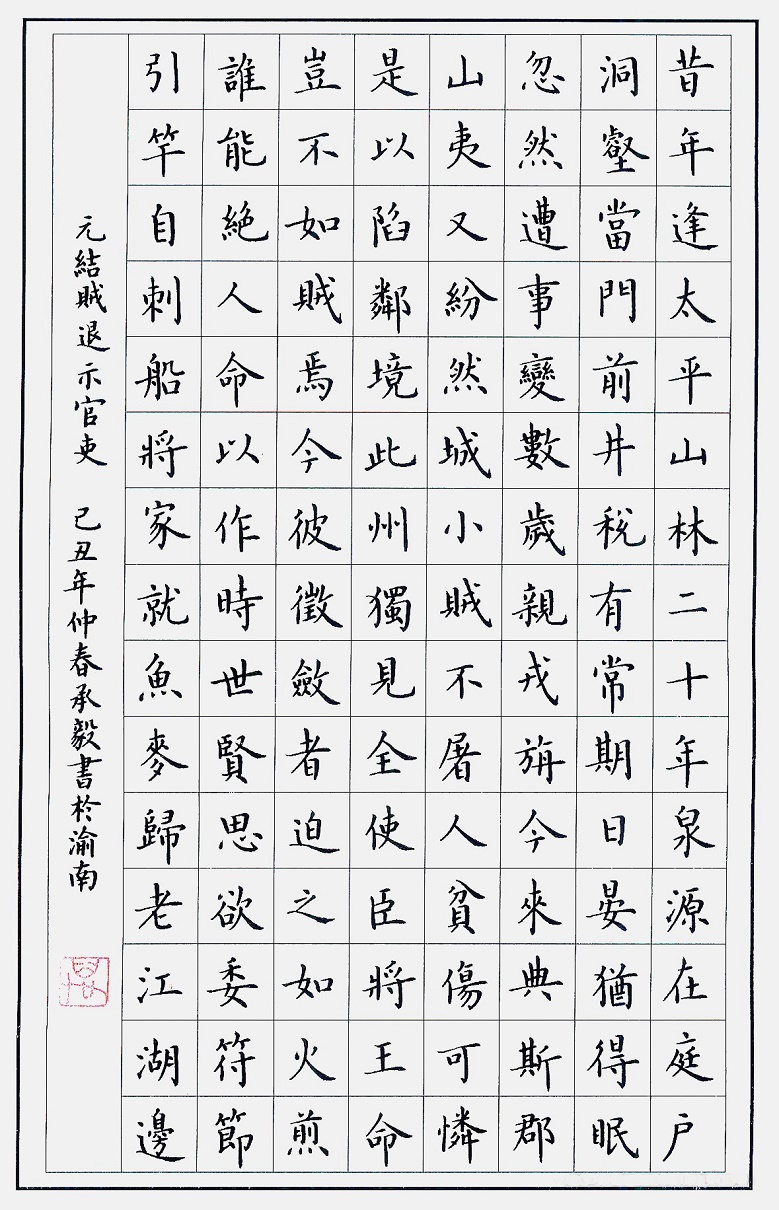 昔年逢太平山林二十年泉源在庭戶
洞壑當門前井稅有常期日晏猶得眠
忽然遭事變數歲親戎旃今來典斯郡
山夷又紛然城小賊不屠人貧傷可憐
是以陷鄰境此州獨見全使臣將王命
豈不如賊焉今彼徵斂者迫之如火煎
誰能絕人命以作時世賢思欲委符節
引竿自刺船將家就魚麥歸老江湖邊
元結賊退示官吏 己丑年仲春承毅書於渝南